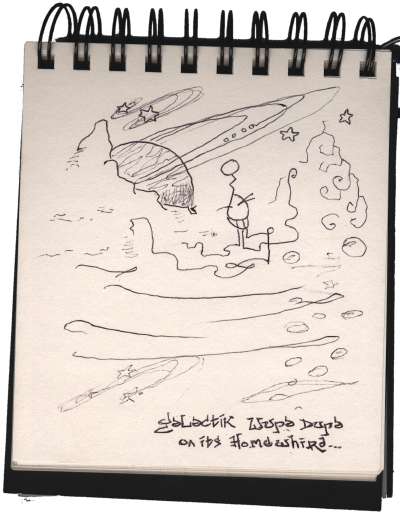 GaLactiK Wupa Dupa
on its Homewhirld...